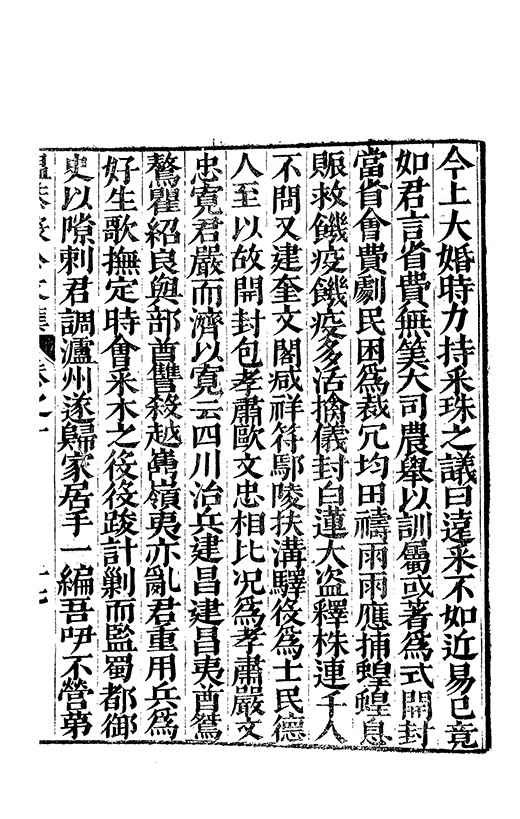 今上大婚時力持采珠之議曰遠采不如近易已竟
如君言省費無筭大司農舉以訓屬或著為式開封
當省會費劇民困為裁冗均田禱雨雨應捕蝗蝗息
賑救饑疫饑疫多活擒儀封白蓮大盗釋株連千人
不問又建奎文閣咸祥符鄢陵扶溝驛役為士民德
人至以故開封包孝肅歐文忠相比况為孝肅嚴文
忠寬君嚴而濟以寬云四川治兵建昌建昌夷酋鴛
鰲瞿紹良與部酋讐殺越嶲嶺夷亦亂君重用兵為
好生歌撫定時會采木之役役踆計剿而監蜀都御
史以隙刺君調瀘州遂歸家居手一編吾吚不營第
卷之十